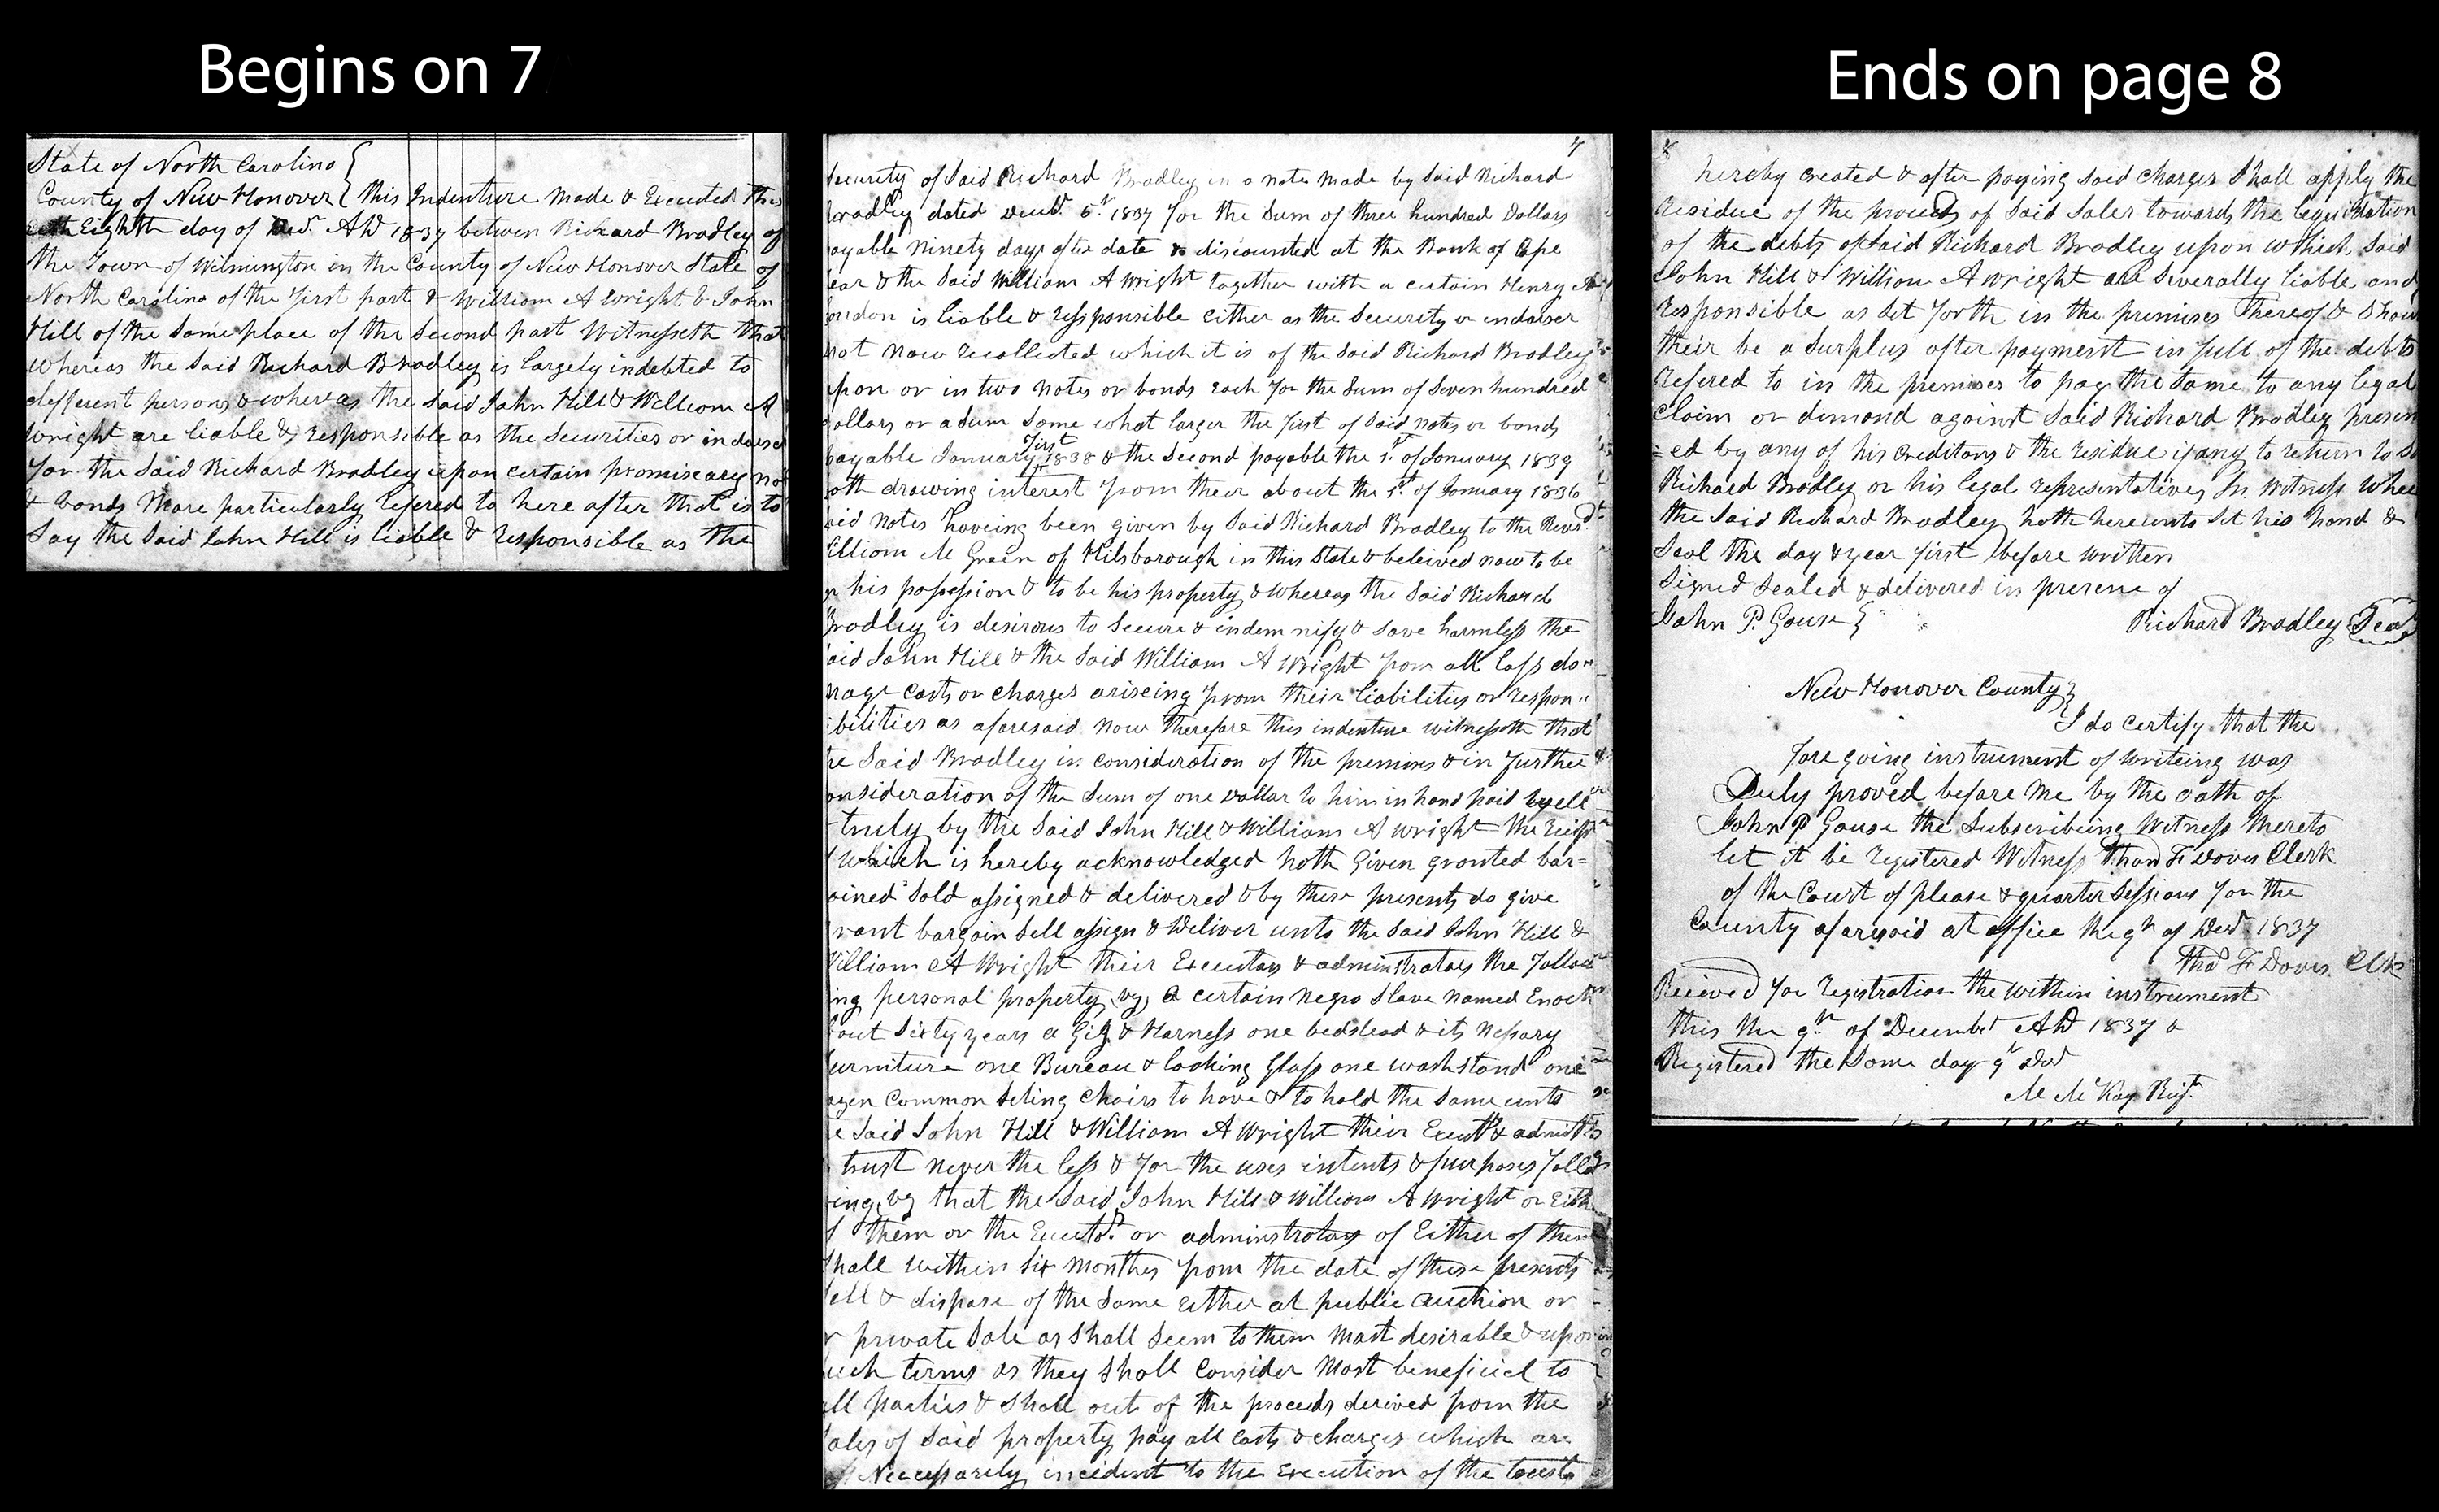 Begins on 7
State of North Carolina
County of New Hanover this Indenture made & Executed this
Eighth day of Decr. AD 1837 between Richard Bradley of
the Town of Wilmington in the County of New Hanover State of
North Carolina of the first part & William A Wright & John
Hill of the same place of the second part Witnesseth that
whereas the said Richard Bradley is largely indebted to
different persons & whereas the said John Hill & William A
Wright are liable & responsible as the securities or
for the said Richard Bradley upon certain promiseary
& bonds more particularly refered to here after that is to
Say the said John Hill is liable & responsible as the
7
security of said Richard Bradley in a note made by said Richard
dated 1837 for the sum of three hundred Dollars
ninety days after date & discounted at the Bank of Cape
& the said William A Wright together with a certain Henry
is liable & responsible either as the security or endorser
not now recollected which it is of the said Richard Bradley
upon or in two notes or bonds each for the sum of seven hundred
dollars or a sum some what larger the first of said notes or bonds
payable January first 1838 & the second payable the 1st of January 1839
both drawing interest from their about the 1st of January 1836
said notes haveing been given by said Richard Bradley to the Revrd
William M Green of Hilsborough in this State & beleived now to be
in his possession & to be his property & whereas the said Richard
Bradley is desirous to secure & indemnify & save harmless the
said John Hill & the said William A Wright from all loss da-
mage costs or charges ariseing from their liabilities or respon-
bilities as aforesaid now therefore this indenture witnesseth that
the said Bradley in consideration of the premises & in further
consideration of the sum of one Dollar to him in hand paid
truly by the said John Hill & William A Wright the
which is hereby acknowledged hath given granted bar=
gained sold assigned & delivered & by these presents do give
grant bargain sell assign & Deliver unto the said John Hill &
William A Wright their Executors & administrators the
ing personal property, vz, a certain negro slave named Enoch
about sixty years a Gig & Harness one bedstead & its
furniture one Bureau & looking Glass one washstand one
common seting chairs to have & to hold the same unto
the said John Hill & William A Wright their
trust never the less & for the uses intents & purposes
ing, vz that the said John Hill & William A Wright or
of them or the or administrators of Either of them
shall within six months from the date of these presents
sell & dispose of the same either at public auction or
private sale as shall seem to them most desirable & upon
such terms as they shall consider most beneficial to
all parties & shall out of the proceeds derived from the
sales of said property pay all costs & charges which are
Necessarily incident to the Execution of the trusts
Ends on page 8
8
hereby created & after paying said charges shall apply the
residue of the proceeds of said sales towards the
of the debts of said Richard Bradley upon which said
John Hill & William A Wright are severally liable and
responsible as set forth in the premises thereof &
their be a surplus after payment in full of the debts
refered to in the premises to pay the same to any legal
claim or demand against said Richard Bradley presen
=ed by any of his creditors & the residue if any to return to
Richard Bradley or his legal representatives In Witness
the said Richard Bradley hath hereunto set his hand &
seal the day & year first before written
Signed sealed & delivered in presence of
John P. Gause Richard Bradley Seal
New Hanover County
I do certify that the
fore going instrument of writeing was
Duly proved before me by the oath of
John P Gause the subscribeing Witness thereto
let it be registered Witness F Davis Clerk
of the Court of please & quarter Sessions for the
County aforesaid at office the 9th of 1837
F Davis Clk
Received for registration the within instrument
this the 9th of December AD 1837 &
Registered the same day